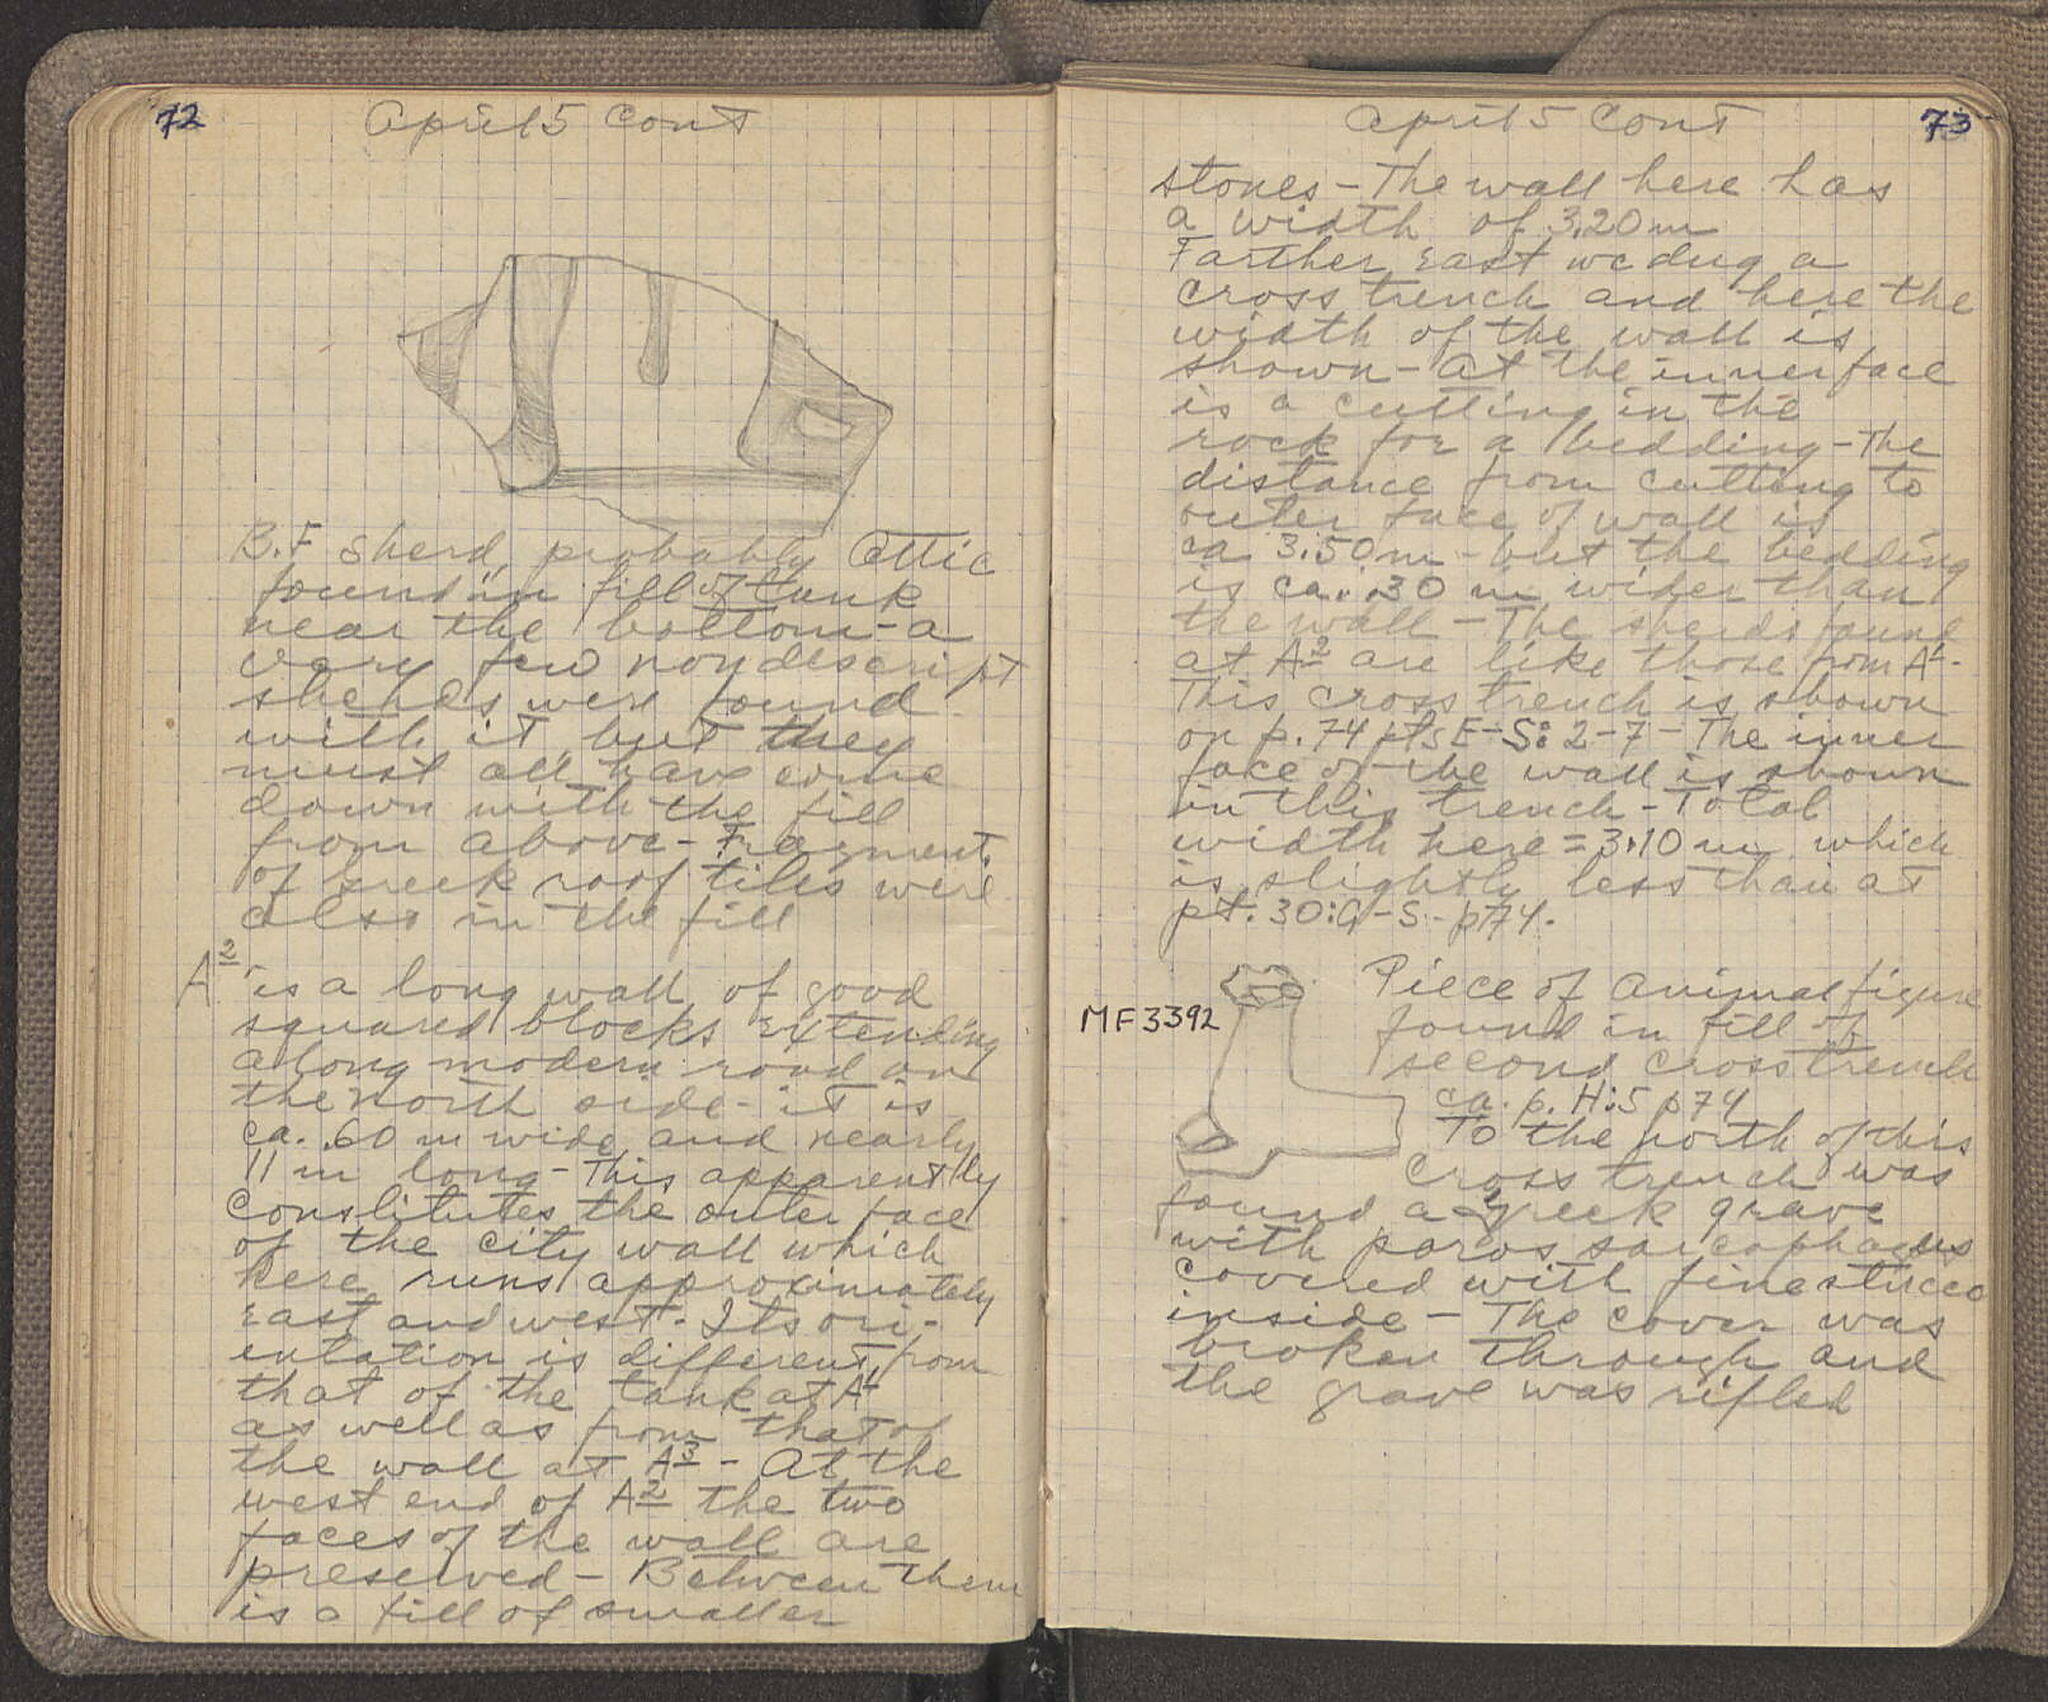 72
April 5 Cont
B.F sherd, probably Attic
found in fill of tank
near the bottom - a
very few nondescript
sherds were found
with it but they
must all have come
down with the fill
from above - Fragment.
of Greek roof tiles were
also in the fill
A2 is a long wall of good
squared blocks extending
along modern road on
the north side - it is
ca. .60 m wide and nearly
11 m long - This apparently
constitutes the outer face
of the city wall which
here runs approximately
East and west. Its ori-
entation is different from
that of the tank at A1
as well as from that of
the wall at A3 - At the
west end of A2 the two
faces of the wall are
preserved - Between them
is a fill of smaller
April 5 Cont
73
stones - The wall here has
a width of 3.20 m
Farther East we dug a
cross trench and here the
width of the wall is
shown - At the inner face
is a cutting in the
rock for a bedding - The
distance from cutting to
outer face of wall is
ca 3.50 m - but the bedding
is ca. .30 m wider than
the wall - The sherds found
at A2 are like those from A1 -
This cross trench is shown
on p. 74 pts E-S: 2-7 - The inner
face of the wall is shown
in this trench - Total
width here = 3.10 m which
is slightly less than at
pt. 30: G-S - p 74.
MF3392
Piece of Animal figure
found in fill of
second cross trench
ca. p. H:5 p 74
To the north of this
cross trench was
found a Greek grave
with poros sarcophagus
covered with fine stucco
inside - The cover was
broken through and
the grave was rifled